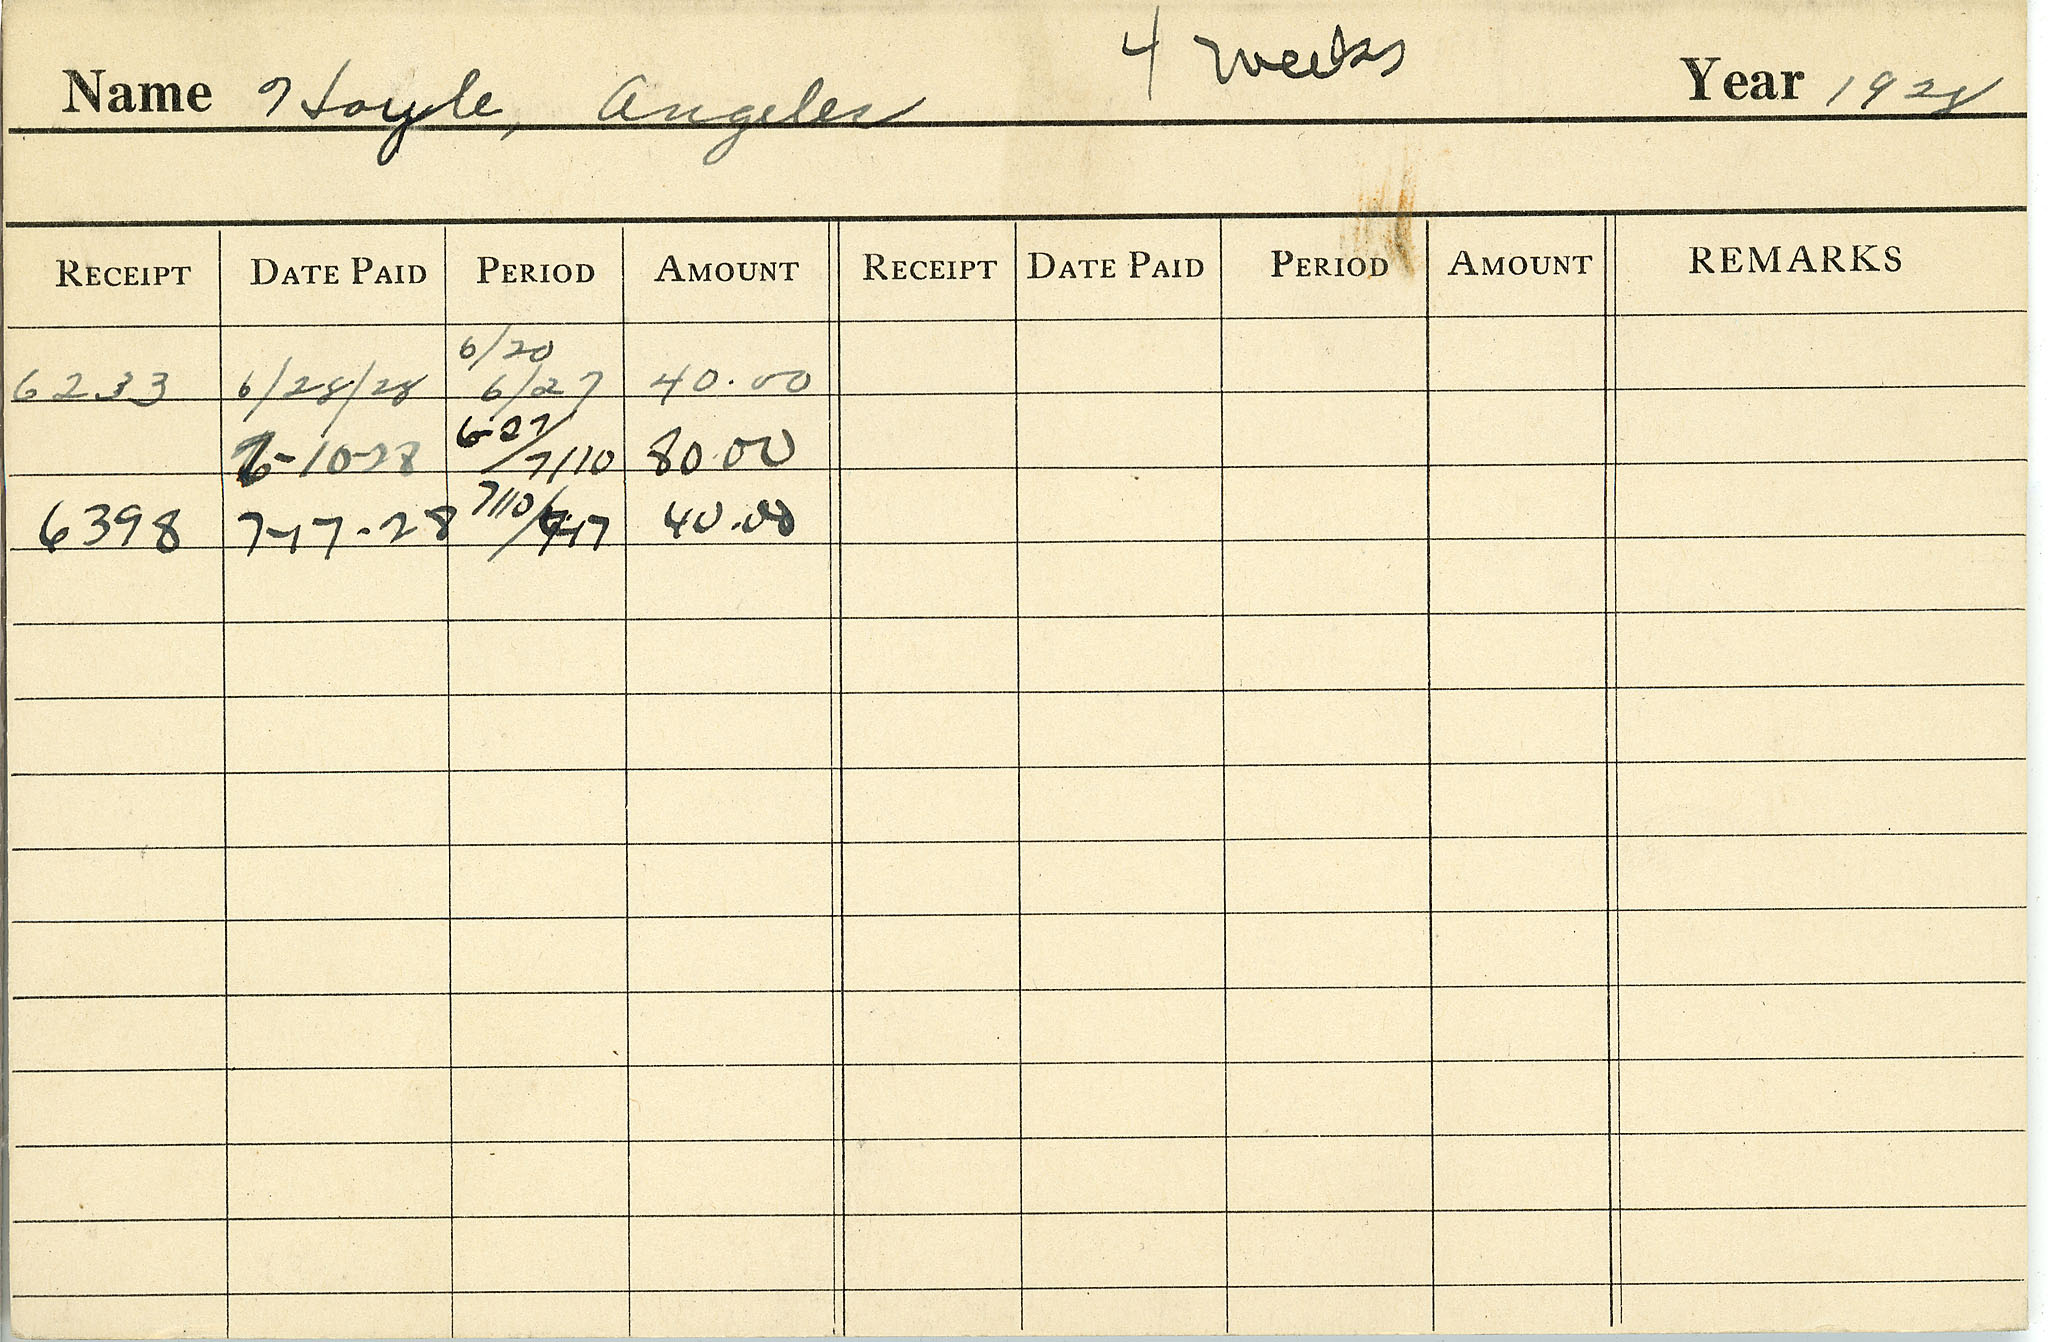 4 weeks
Name Hoyle, Angeles Year 1928
RECEIPT DATE PAID PERIOD AMOUNT RECEIPT DATE PAID PERIOD AMOUNT REMARKS
6/20
6233 6/28/28 6/27 40.00
6-27/
7-10-28 7/10 80.00
7/10/
6398 7-17-28 7-17 40.00